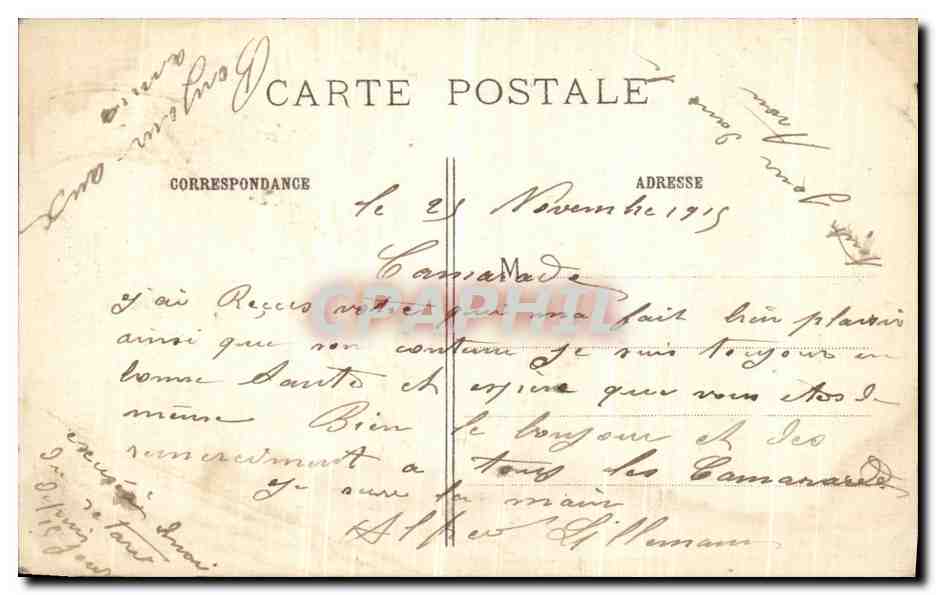 CARTE POSTALE
CORRESPONDANCE
ADRESSE
Bonjour aux
amis
le 25 Novembre 1915
M
Camarade
j'ai Reçus votre que ma fait bien plaisir
ainsi que son contenu je suis toujour en
bonne Santé et espère que vous etes de
même Bien le bonjour et des
remerciment a tous les Camarades
je serre la main
Alfred
excusé moi
du retard
CPAPHIL